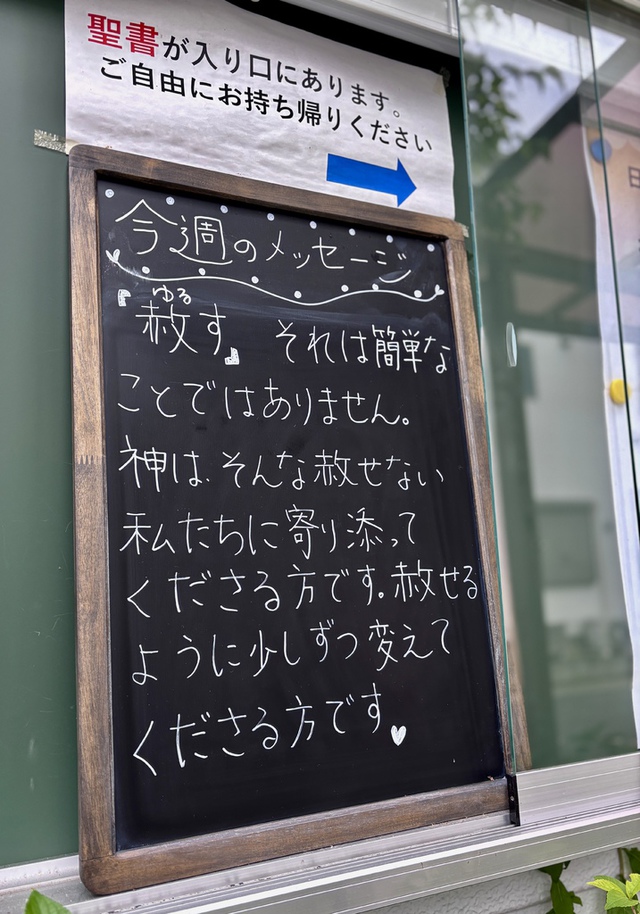 聖書が入り口にあります。
ご自由にお持ち帰りください
今週のメッセージ
ゆる
『赦す』 それは簡単な
ことではありません。
神は、そんな赦せない
私たちに寄り添って
くださる方です。赦せる
ように少しずつ変えて
くださる方です。